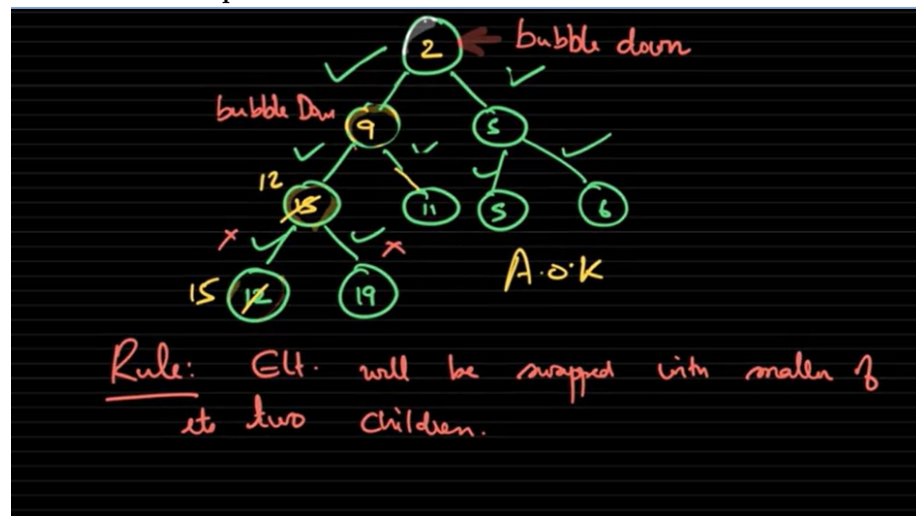 2 bubble down
bubble Down
9 5
12
15 11 5 6
15 12 19
A.O.K
Rule: Elt. will be swapped with smaller of
its two children.